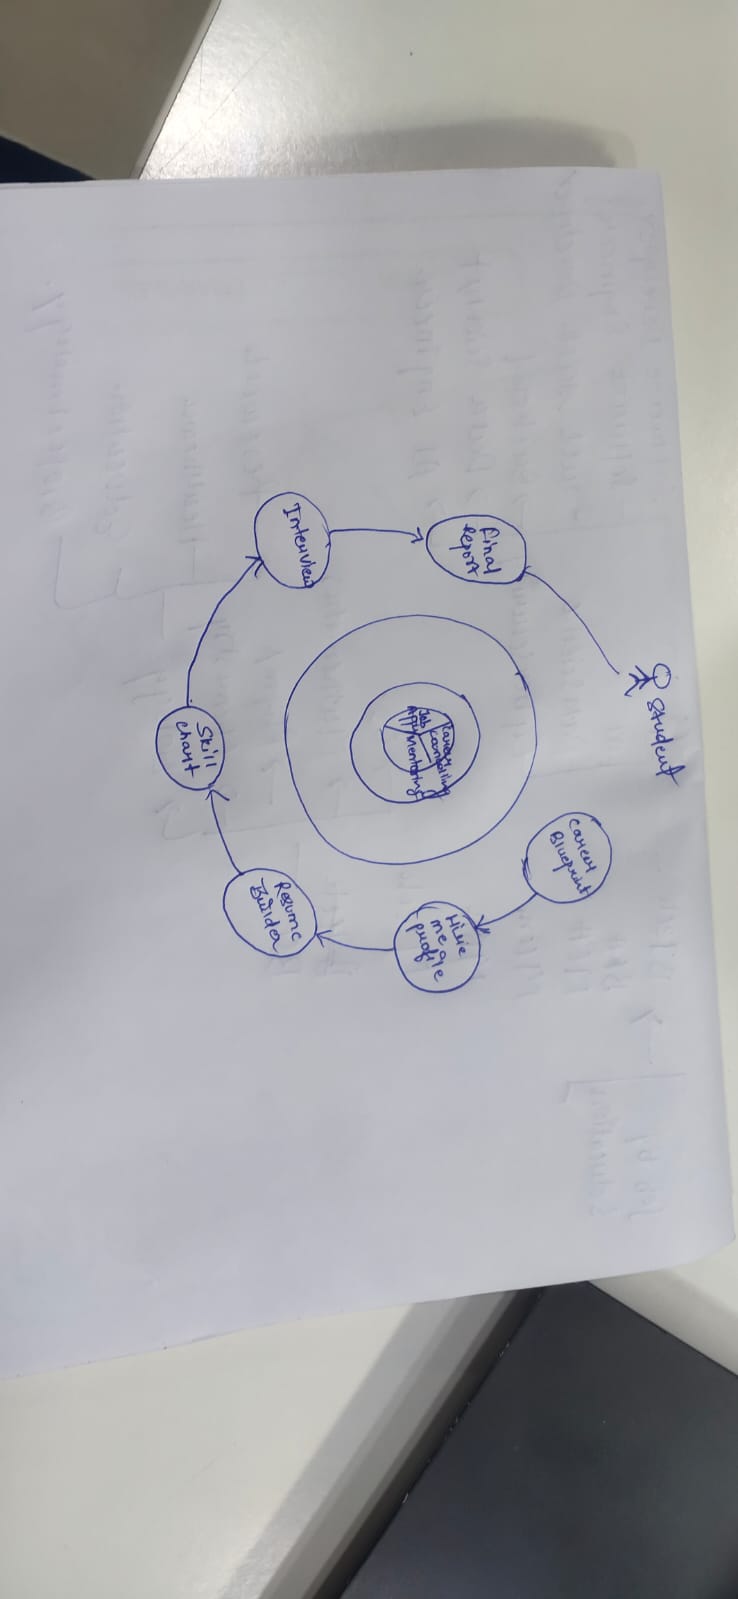 Student
Career
Blueprint
Hire
me
profile
Resume
Builder
Skill
chart
Interview
Final
Report
Career
Job
Mentoring